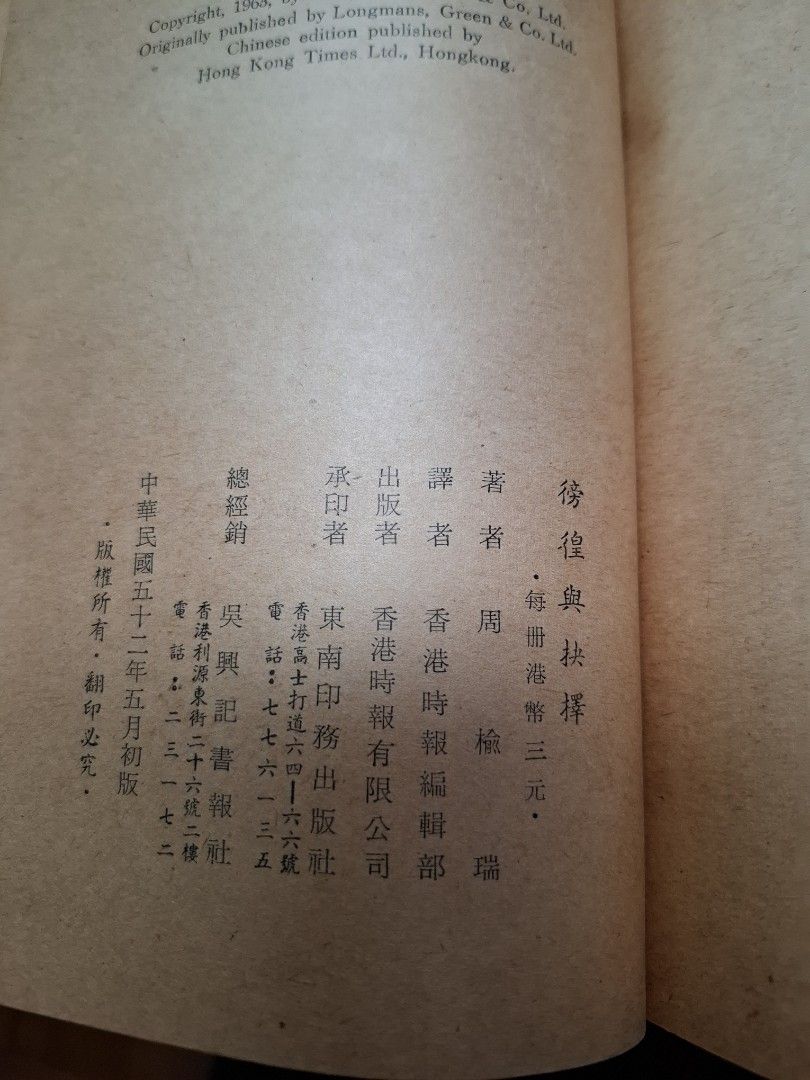 Copyright, 1963, by & Co. Ltd.
Originally published by Longmans, Green & Co. Ltd.
Chinese edition published by
Hong Kong Times Ltd., Hongkong.
徬徨與抉擇
·每册港幣三元·
著者 周榆瑞
譯者 香港時報編輯部
出版者 香港時報有限公司
承印者 東南印務出版社
香港高士打道六四—六六號
電話：七七六一三五
總經銷 吳興記書報社
香港利源東街二十六號二樓
電話：二三一七二
中華民國五十二年五月初版
·版權所有·翻印必究·